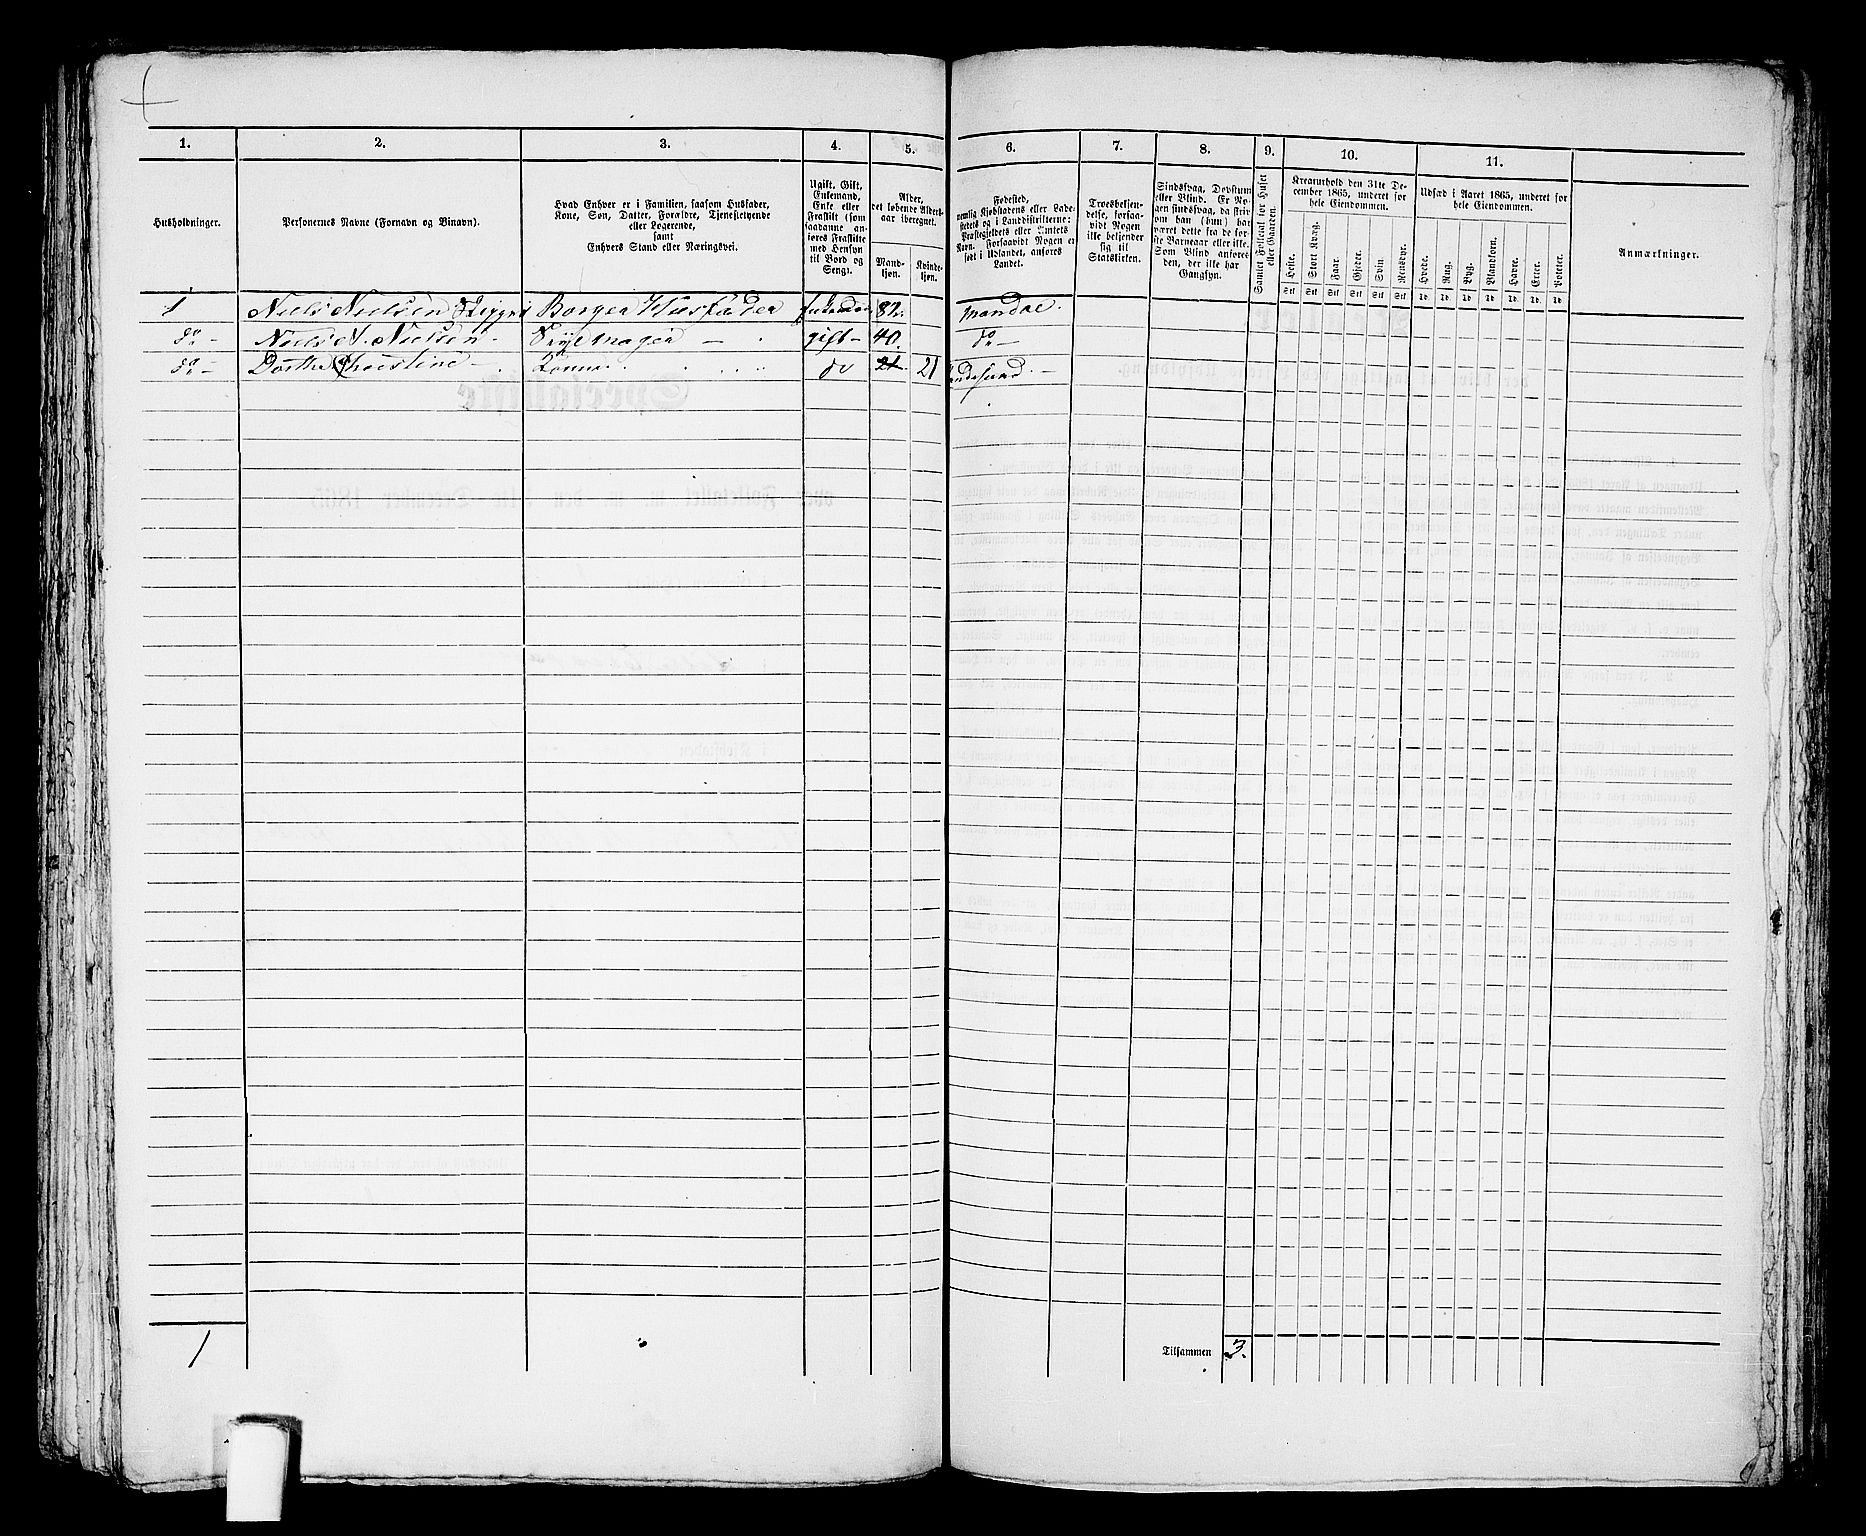 1. 2. 3. 4. 5. 6. 7. 8. 9. 10. 11.
Husholdninger.
Personernes Navne (Fornavn og Binavn).
Hvad Enhver er i Familien, saasom Husfader,
Kone, Søn, Datter, Forældre, Tjenestetyende
eller Logerende,
samt
Enhvers Stand eller Næringsvei.
Ugift, Gift,
Enkemand,
Enke eller
Fraskilt (som
saadanne an-
føres Fraskilte
med Hensyn
til Bord og
Seng).
Alder,
det løbende Alders-
aar iberegnet.
Mand-
kjøn.
Kvinde-
kjøn.
Fødested,
nemlig Kjøbstadens eller Lade-
stedets og i Landdistrikterne:
Præstegjeldets eller Amtets
Navn. Forsaavidt Nogen er
født i Udlandet, anføres
Landet.
Troesbekjen-
delse, forsaa-
vidt Nogen
ikke bekjender
sig til
Statskirken.
Sindssvag, Døvstum
eller Blind. Er No-
gen sindssvag, da skri-
ves om han (hun) har
været dette fra de før-
ste Barneaar eller ikke.
Som Blind anføres
den, der ikke har
Gangsyn.
Samlet Folketal for Huset
eller Gaarden.
Kreaturhold den 31te De-
cember 1865, underet for
hele Eiendommen.
Heste. Stort Kvæg. Faar. Gjeder. Svin. Rensdyr.
Stk Stk Stk Stk Stk Stk
Udsæd i Aaret 1865, underet for
hele Eiendommen.
Hvede. Rug. Byg. Blandkorn. Havre. Erter. Poteter.
Td. Td. Td. Td. Td. Td. Td.
Anmærkninger.
1 Niels Nielsen Borger Husfader 82. Mandal.
do – Niels N. Nielsen gift – 40. do –
do – Dorthe Christine Konne do 21 21
1
Tilsammen 3.